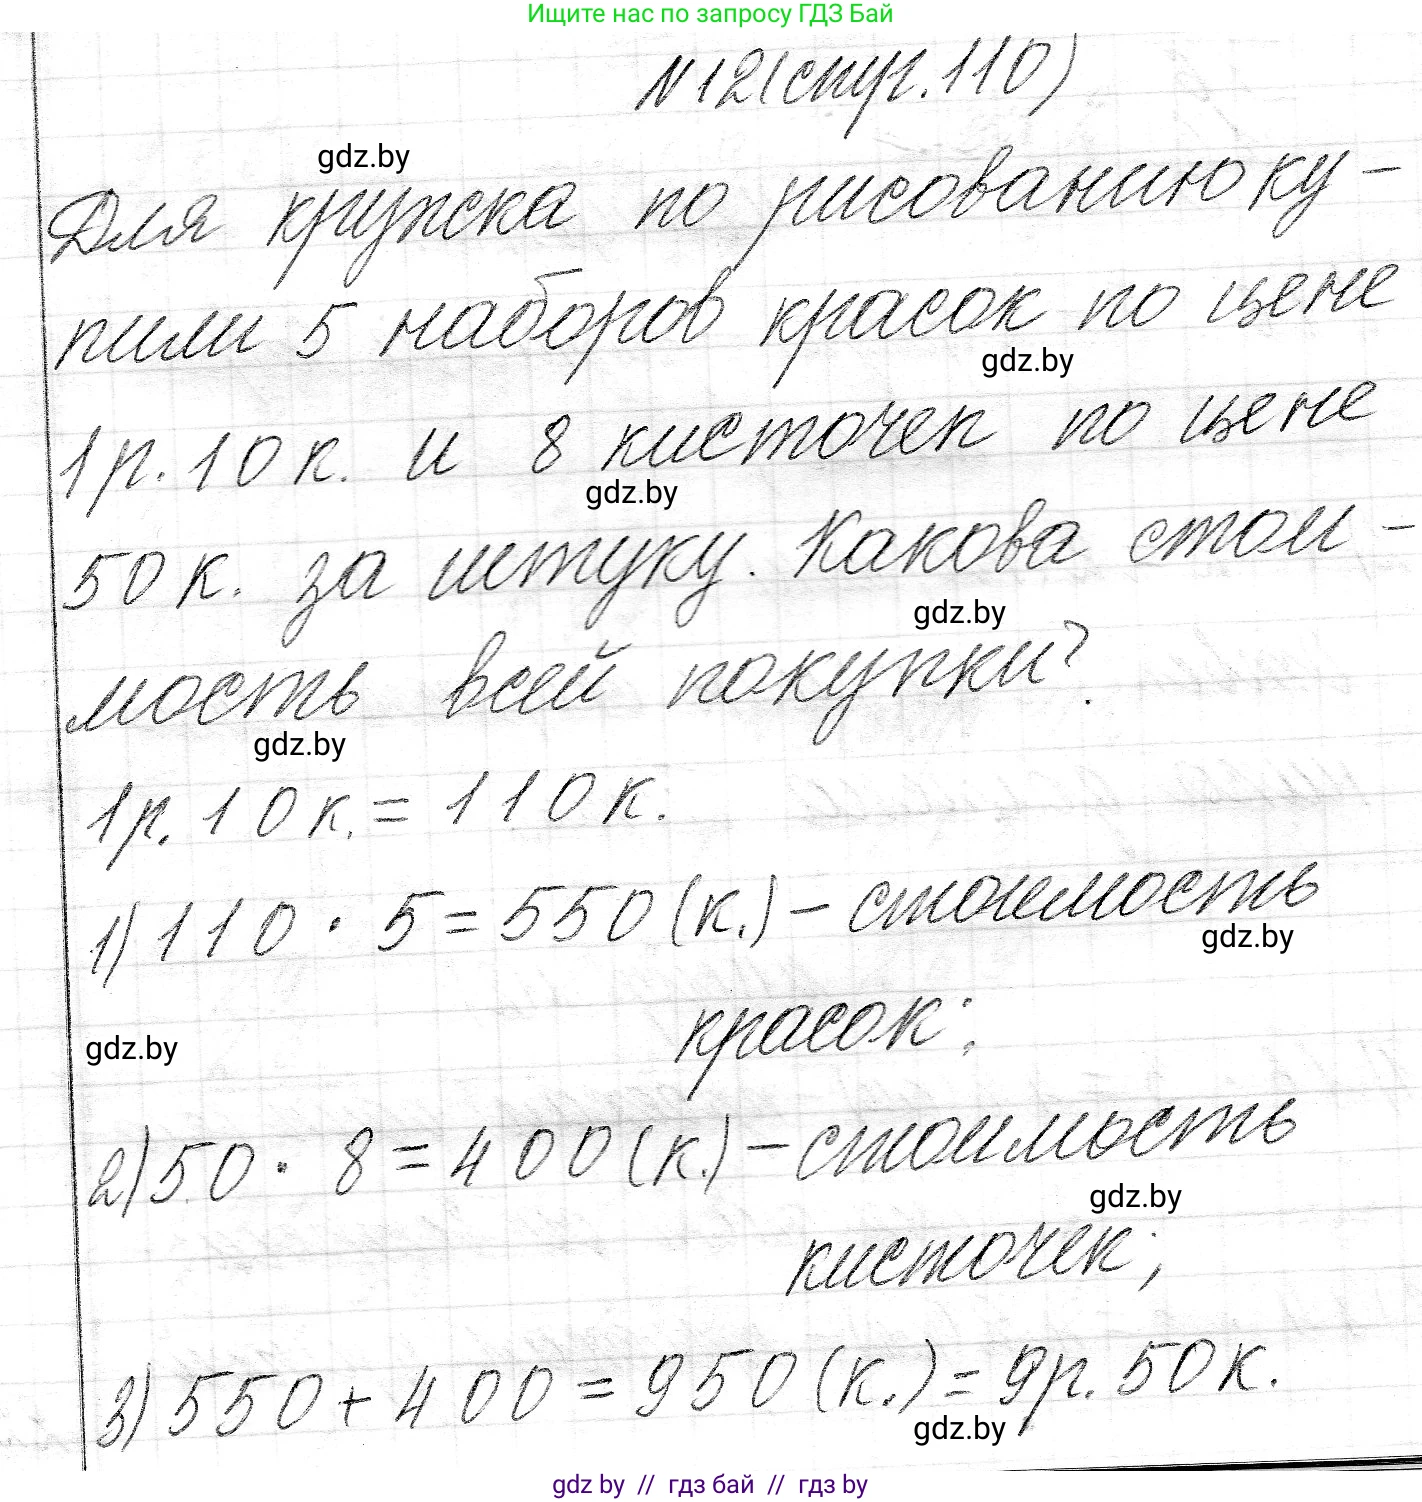 Ищите нас по запросу ГДЗ Бай
N12(стр.110)
gdz.by
Для кружка по рисованию ку-
пили 5 наборов красок по цене
gdz.by
1р.10к. и 8 кисточек по цене
gdz.by
50к. за штуку. Какова стои-
gdz.by
мость всей покупки?
gdz.by
1р.10к.=110к.
1)110·5=550(к.)-стоимость
gdz.by
красок;
gdz.by
2)50·8=400(к.)-стоимость
gdz.by
кисточек;
3)550+400=950(к.)=9р.50к.
gdz.by
gdz by // гдз бай // гдз by